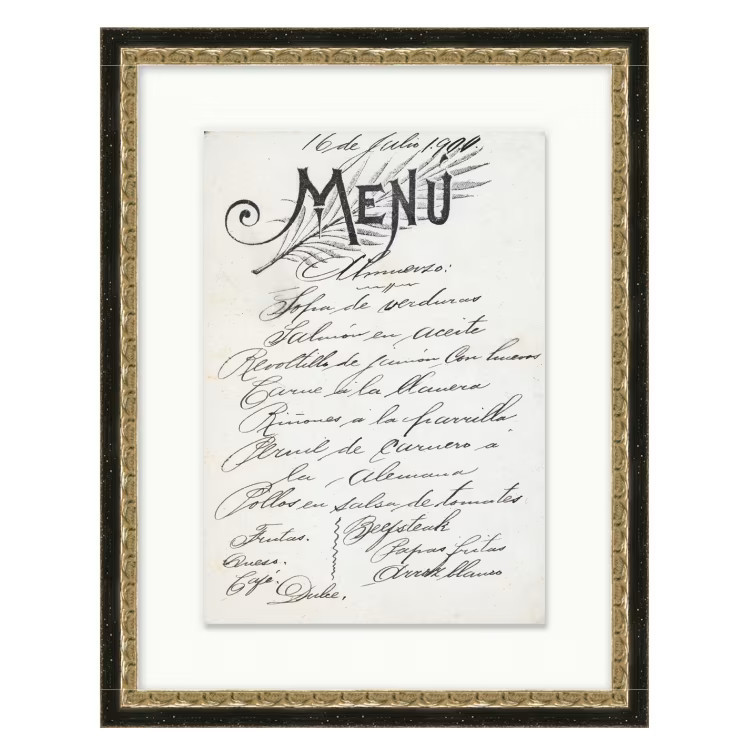 16 de Julio 1900.
MENÚ
Almuerzo:
Sopa de verduras
Salmón en aceite
Revoltillo de jamón con huevos
Carne á la llanera
Riñones a la parrilla
Pernil de carnero á
la Alemana
Pollos en salsa de tomates
Frutas.
Queso.
Café.
Dulce.
Beefsteak
Papas fritas
Arroz blanco